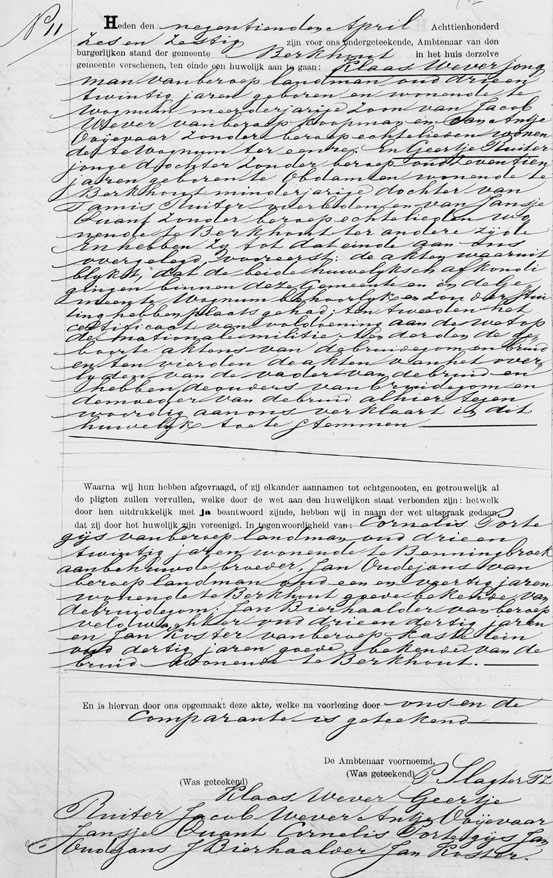 No 11
Heden den negentienden April Achttienhonderd
Zes en Zestig zijn voor ons ondergeteekende, Ambtenaar van den
burgerlijken stand der gemeente Berkhout in het huis derzelve
gemeente verschenen, ten einde een huwelijk aan te gaan: Klaas Wever jong
man van beroep landman oud drie en
twintig jaren geboren en wonende te
Wognum meerderjarige zoon van Jacob
Wever van beroep koopman en van Antje
Ooijevaar zonder beroep echtelieden wonen
de te Wognum ter eenre; En Geertje Ruiter
jonge dochter zonder beroep oud zeventien
jaren geboren te Obdam en wonende te
Berkhout minderjarige dochter van
Tamis Ruiter overleden en van Jansje
Quant zonder beroep echtelieden wo
nende te Berkhout ter andere zijde
En hebben zij tot dat einde aan ons
overgelegd, vooreerst: de akten waaruit
blijkt, dat de beide huwelijksch afkondi
gingen binnen deze Gemeente en in de Ge
meente Wognum behoorlijk en zonder stui
ting hebben plaats gehad; ten tweeden het
certificaat van voldoening aan de wet op
de nationale militie; ten derden de ge
boorte aktens van de bruidegom en bruid
en ten vierden de akten van het over
lijden van de vader van de bruid en
hebben de ouders van bruidegom en
de moeder van de bruid alhier tegen
woordig aan ons verklaart in dit
huwelijk toe te stemmen.
Waarna wij hun hebben afgevraagd, of zij elkander aannamen tot echtgenooten, en getrouwelijk al
de pligten zullen vervullen, welke door de wet aan den huwelijken staat verbonden zijn: hetwelk
door hen uitdrukkelijk met Ja beantwoord zijnde, hebben wij in naam der wet uitspraak gedaan,
dat zij door het huwelijk zijn vereenigd. In tegenwoordigheid van: Cornelis Porte
gijs van beroep landman oud drie en
twintig jaren wonende te Benningbroek
aanbehuwde broeder, Jan Oudejans van
beroep landman oud een en veertig jaren
wonende te Berkhout goede bekende van
de bruidegom; Jan Bierhaalder van beroep
veldwachter oud drie en dertig jaren
en Jan Koster van beroep kastelein
oud dertig jaren goede bekende van de
bruid wonende te Berkhout.
En is hiervan door ons opgemaakt deze akte, welke na voorlezing door ons en de
Comparante is geteekend
De Ambtenaar voornoemd,
(Was geteekend) P. Slagter Tz
(Was geteekend)
Klaas Wever Geertje
Ruiter Jacob Wever Antje Ooijevaar
Jansje Quant Cornelis Portegijs Jan
Oudejans J Bierhaalder Jan Koster.